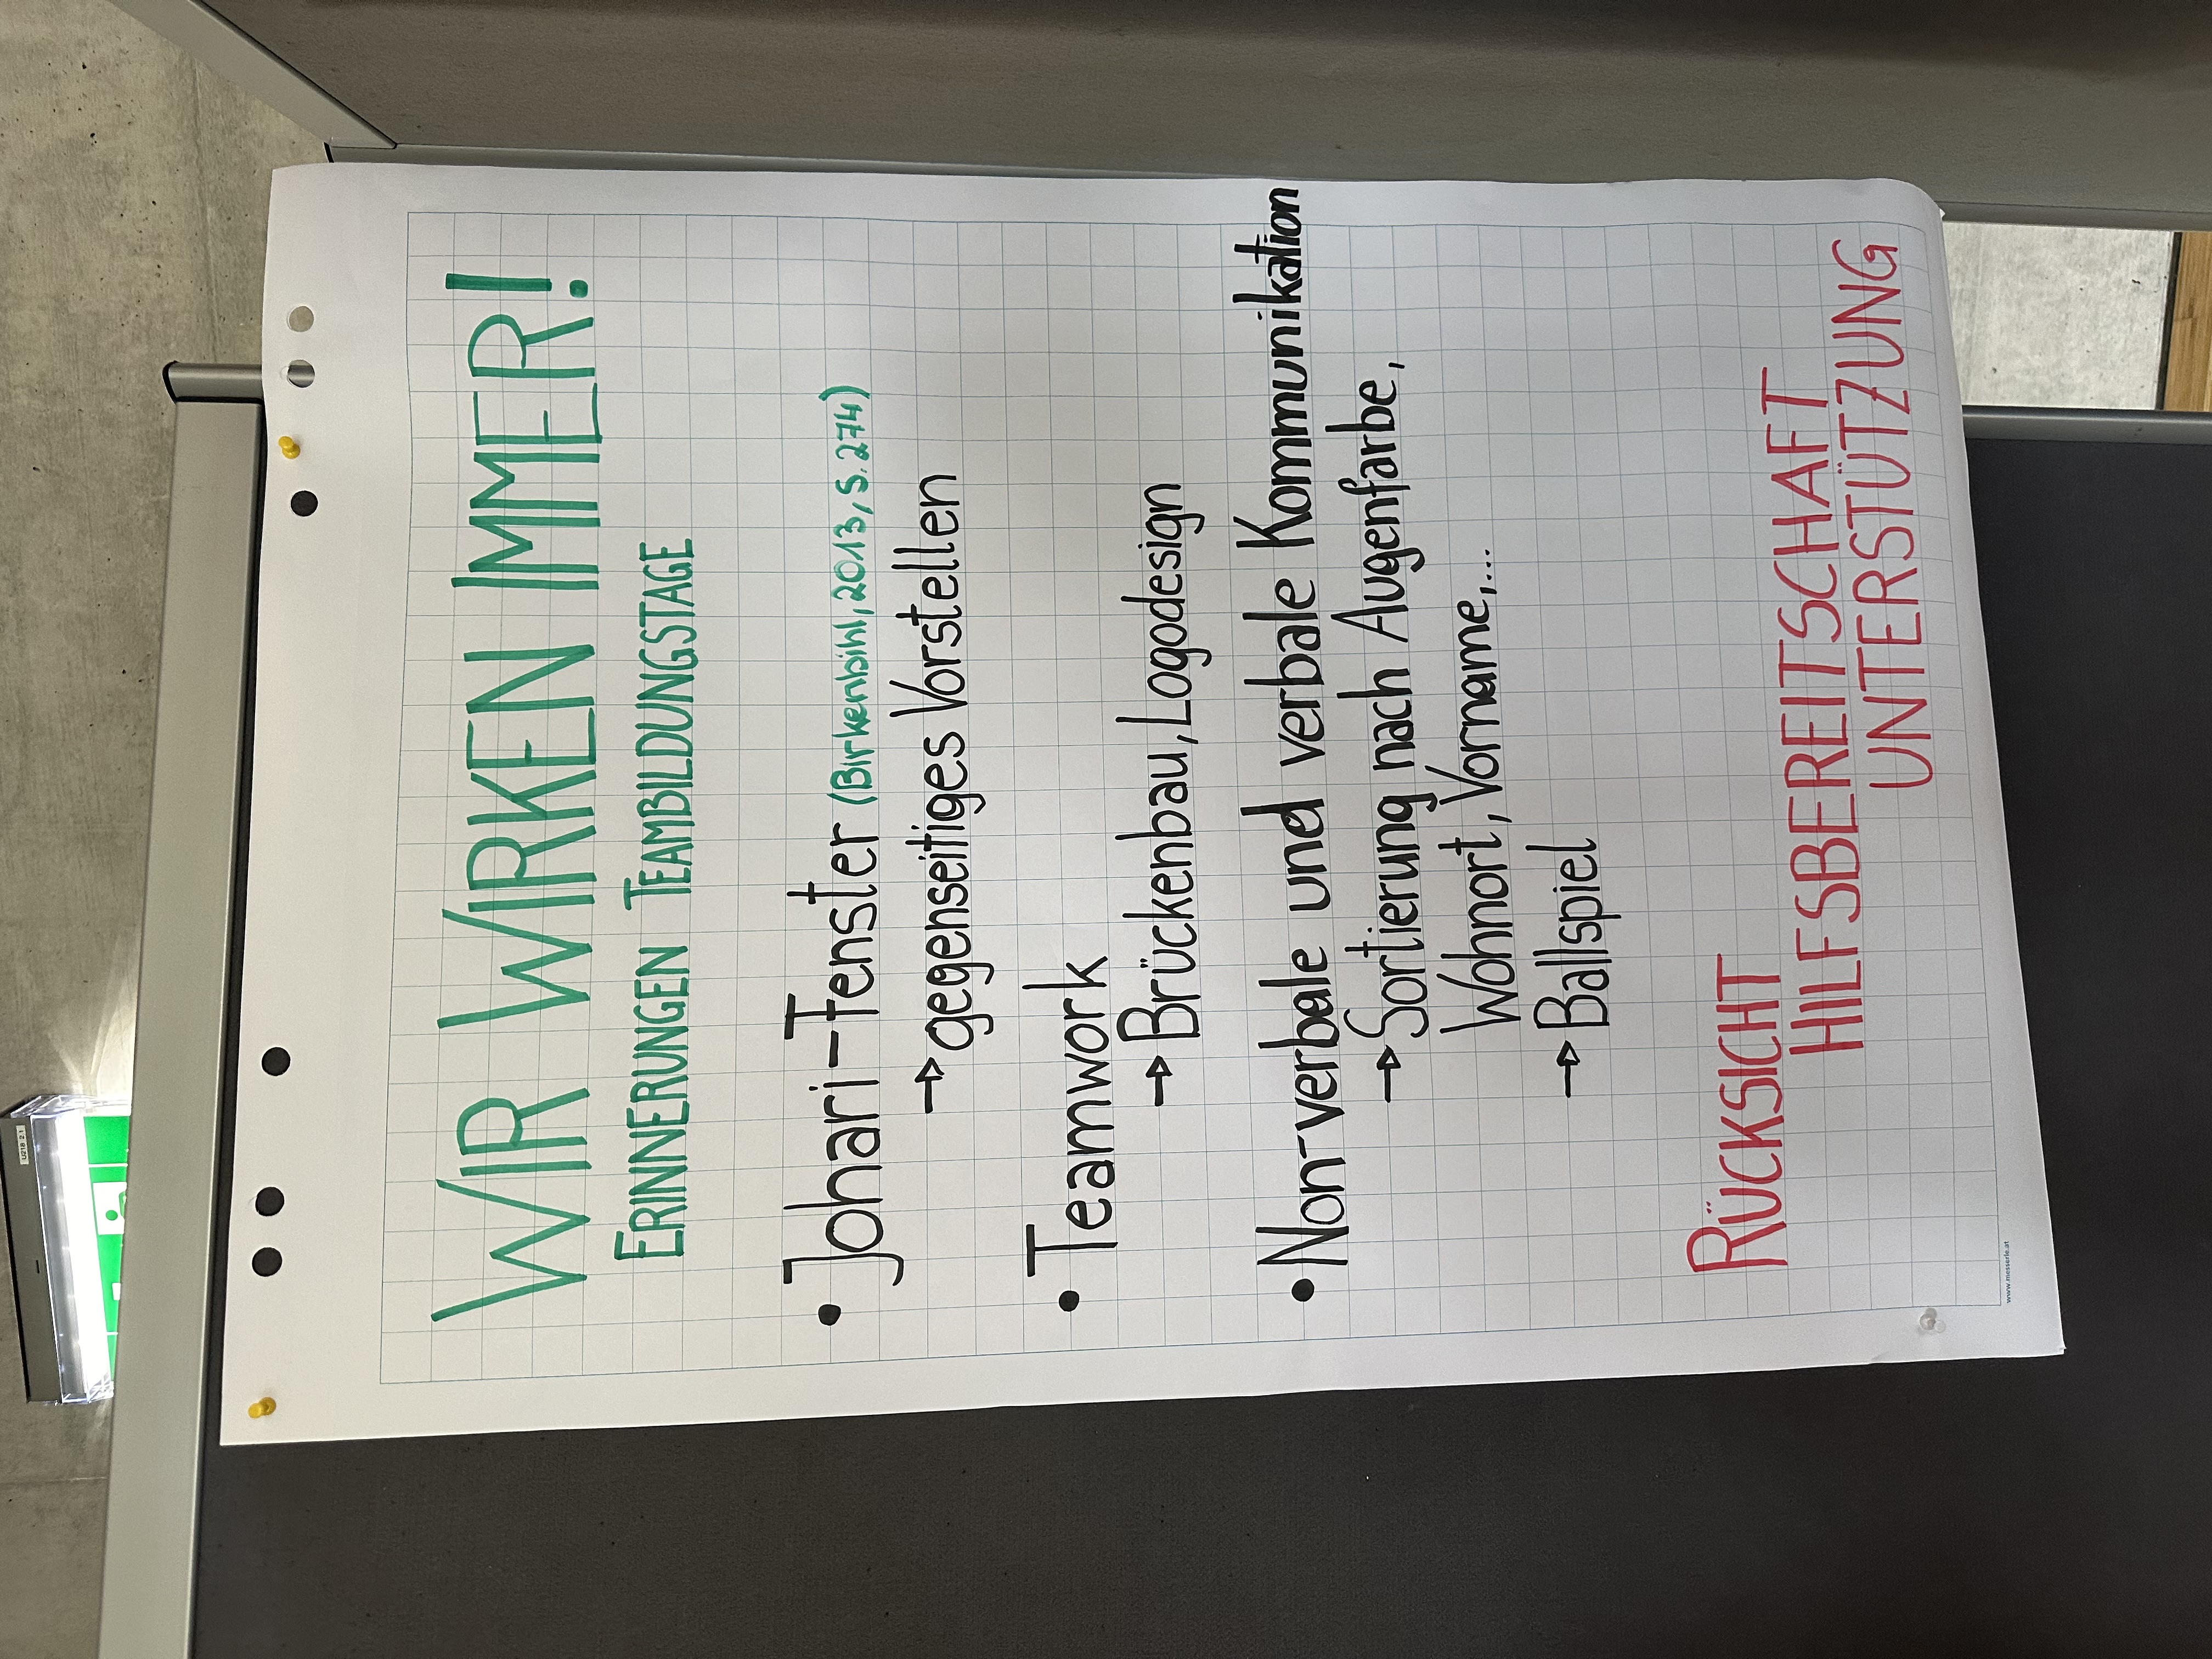 WIR WIRKEN IMMER!
ERINNERUNGEN TEAMBILDUNGSTAGE
• Johari-Fenster (Birkenbihl, 2013, S. 274)
→ gegenseitiges Vorstellen
• Teamwork
→ Brückenbau, Logodesign
• Non-verbale und verbale Kommunikation
→ Sortierung nach Augenfarbe,
Wohnort, Vorname,...
→ Ballspiel
RÜCKSICHT
HILFSBEREITSCHAFT
UNTERSTÜTZUNG
www.messerle.at